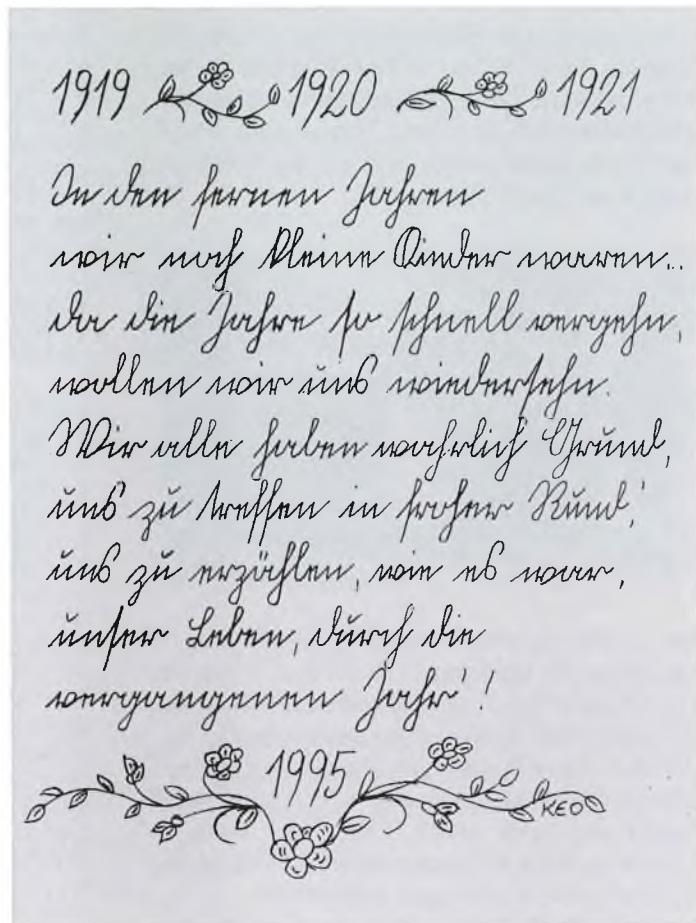 1919 1920 1921
In den fernen Jahren
wir noch kleine Kinder waren..
da die Jahre so schnell vergehn,
wollen wir uns wiedersehn.
Wir alle haben wahrlich Grund,
uns zu treffen in froher Rund',
uns zu erzählen, wie es war,
unser Leben, durch die
vergangenen Jahr'!
1995
KEO